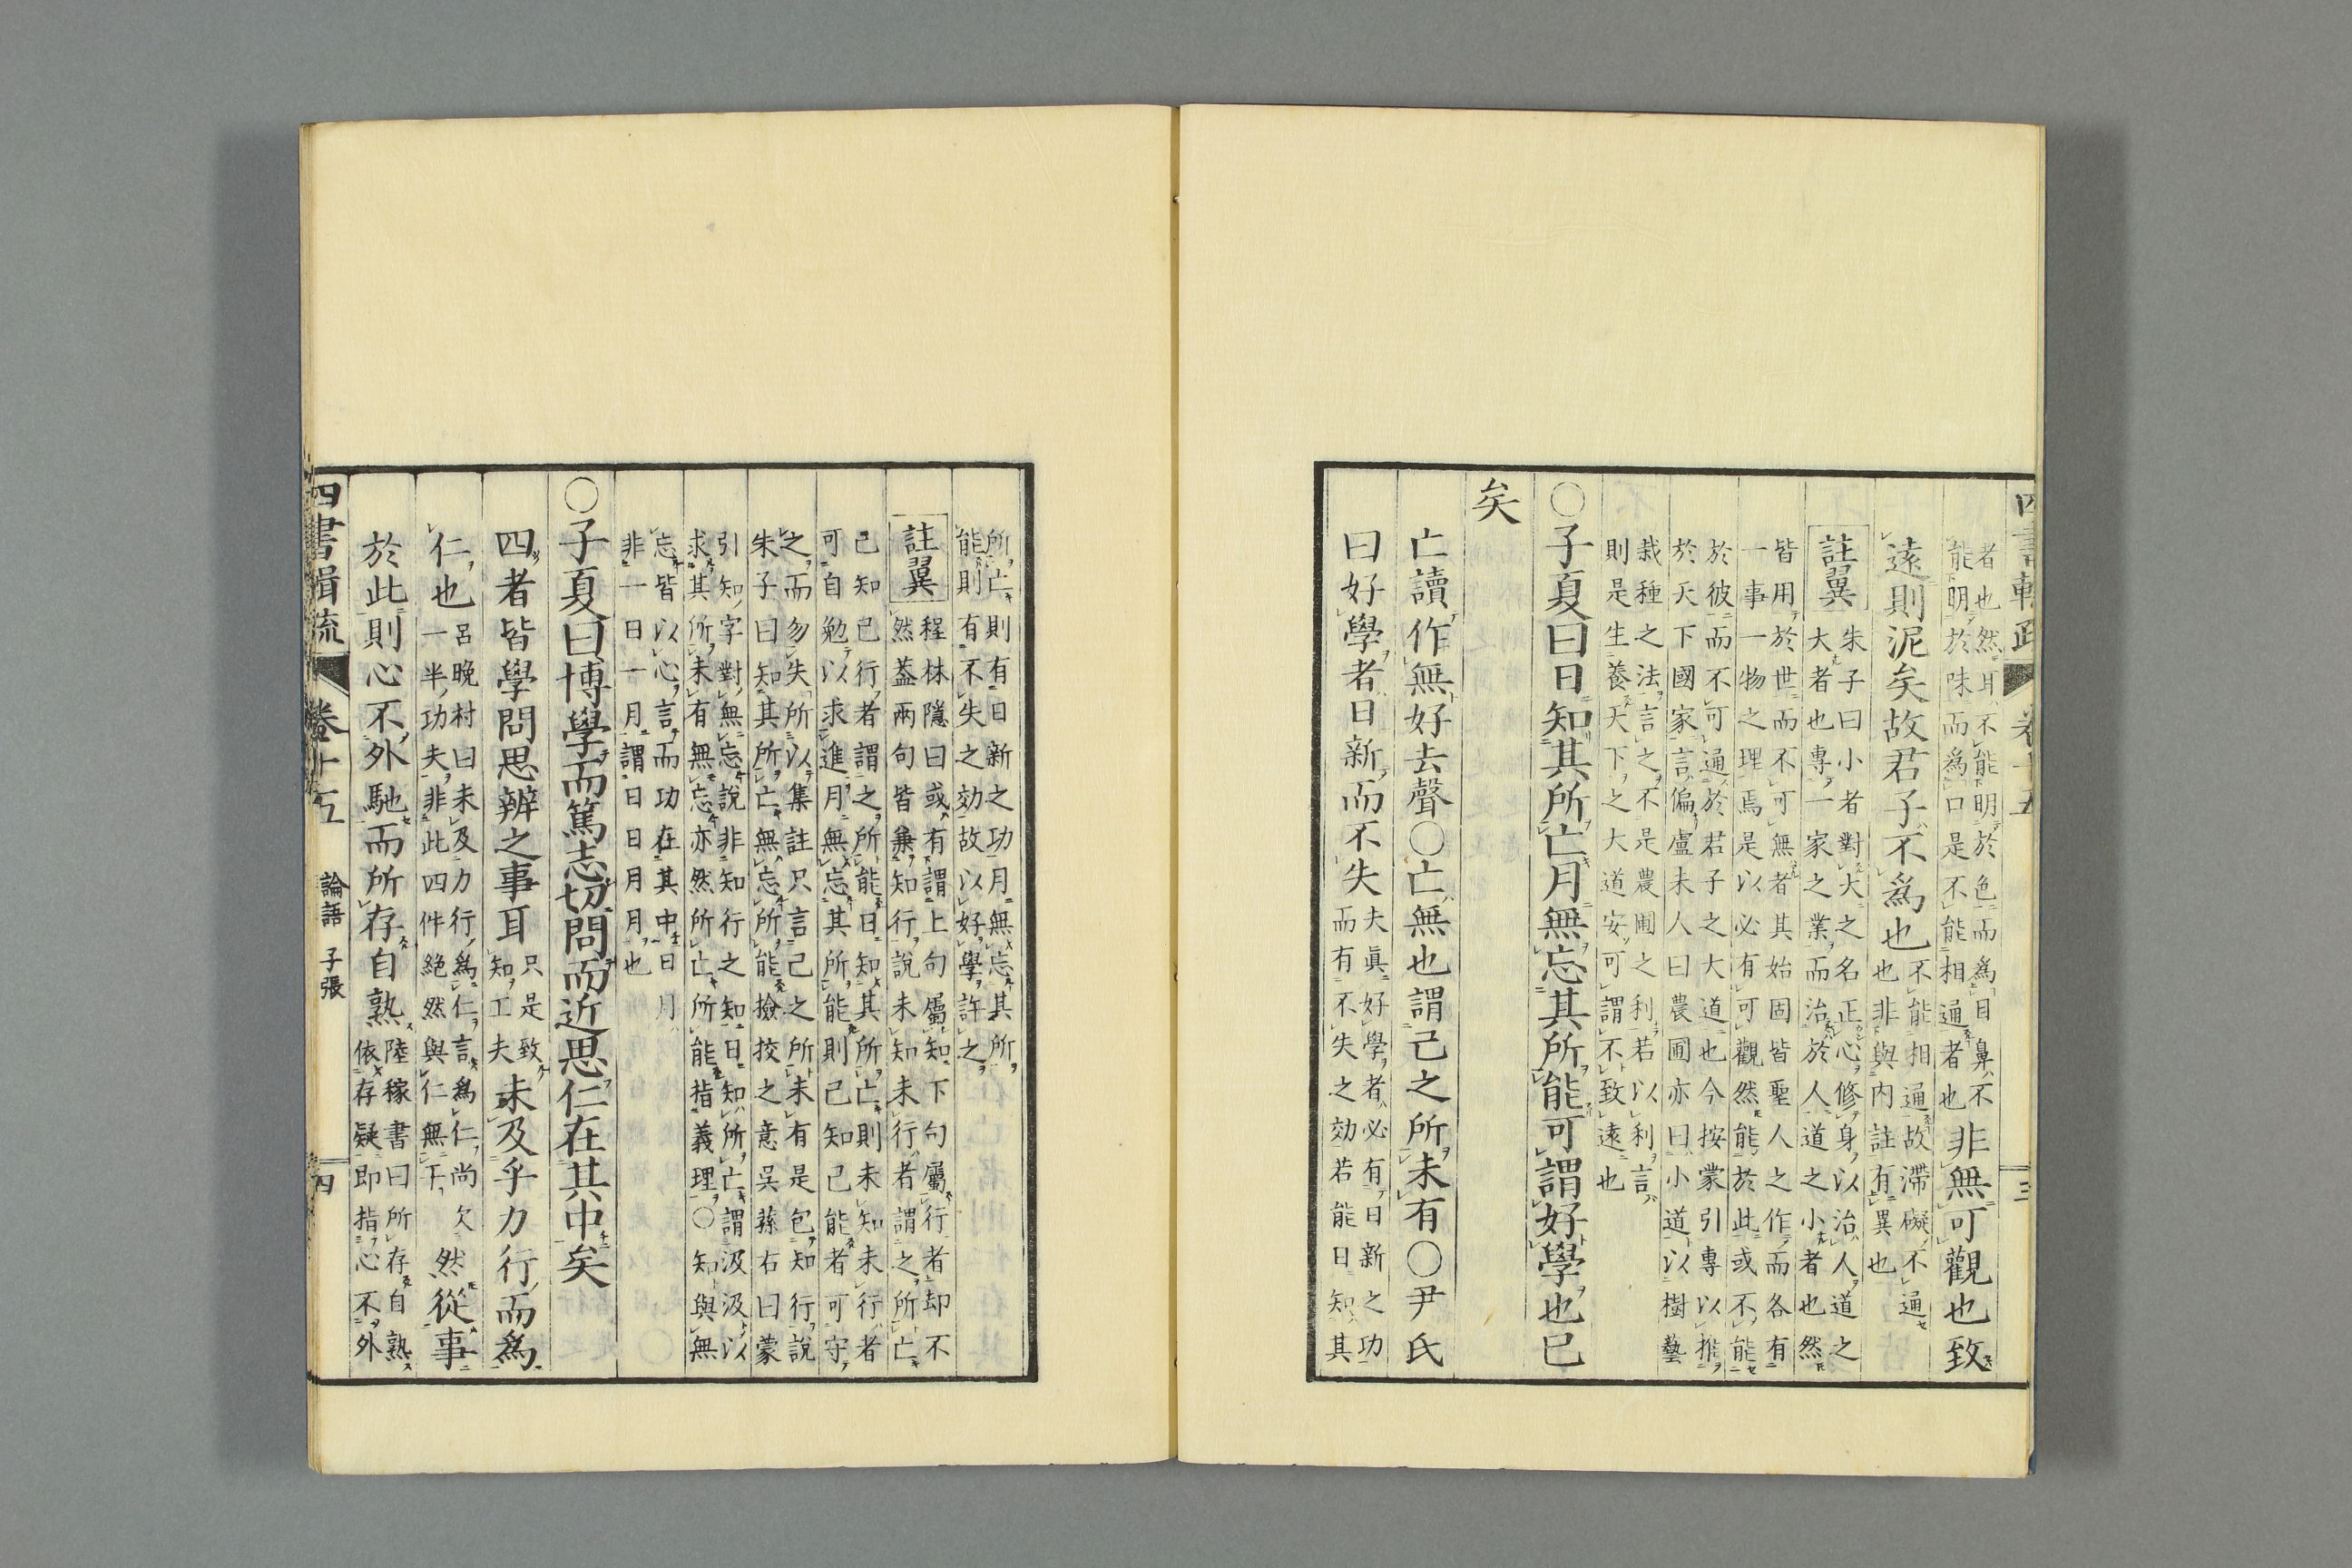 四書輯疏 卷十五 三
者也然耳不能明於色而爲目鼻不
能明於味而爲口是不能相通者也
非無可觀也致
遠則泥矣故君子不爲也
不能相通故滯礙不通
也非與內註有異也
註翼
朱子曰小者對大之名正心修身以治人道之
大者也專一家之業而治於人道之小者也然
皆用於世而不可無者其始固皆聖人之作而各有
一事一物之理焉是以必有可觀然能於此或不能
於彼而不可通於若子之大道也今按蒙引專以推
於天下國家言偏盧未人曰農圃亦曰小道以樹藝
栽種之法言之不是農圃之利若以利言
則是生養天下之大道安可謂不致遠也
○子夏曰日知其所亡月無忘其所能可謂好學也已
矣
亡讀作無好去聲○亡無也謂己之所未有○尹氏
曰好學者日新而不失
夫眞好學者必有日新之功
而有不失之効若能日知其
所亡則有日新之功月無忘其所
能則有不失之効故以好學許之
註翼
程林隱曰或有謂上句屬知下句屬行者却不
然蓋兩句皆兼知行說未知未行者謂之所亡
已知已行者謂之所能日知其所亡則未知未行者
可自勉以求進月無忘其所能則已知已能者可守
之而勿失所以集註只言己之所未有是包知行說
朱子曰知其所亡無忘所能撿挍之意吳蓀右曰蒙
引知字對無忘說非知行之知日知所亡謂汲汲以
求其所未有無忘亦然所亡所能指義理○知與無
忘皆以心言而功在其中日月
非一日一月謂日日月月也
○子夏曰博學而篤志切問而近思仁在其中矣
四者皆學問思辨之事耳
只是致
知工夫
未及乎力行而爲
仁也
呂晩村曰未及力行爲仁言爲仁尚欠
一半功夫非此四件絕然與仁無干
然從事
於此則心不外馳而所存自熟
陸稼書曰所存自熟
依存疑即指心不外
四書輯疏 卷十五 論語 子張 四